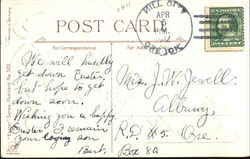 POST CARD
For Correspondence.
MILL CITY
APR
OREGON
We will hardly
get down Easter
but hope to get
down soon.
Wishing you a happy
Easter I remain
your loving son
Bert.
Mrs. J. W. Jewell.
Albany,
Ore
Box 80